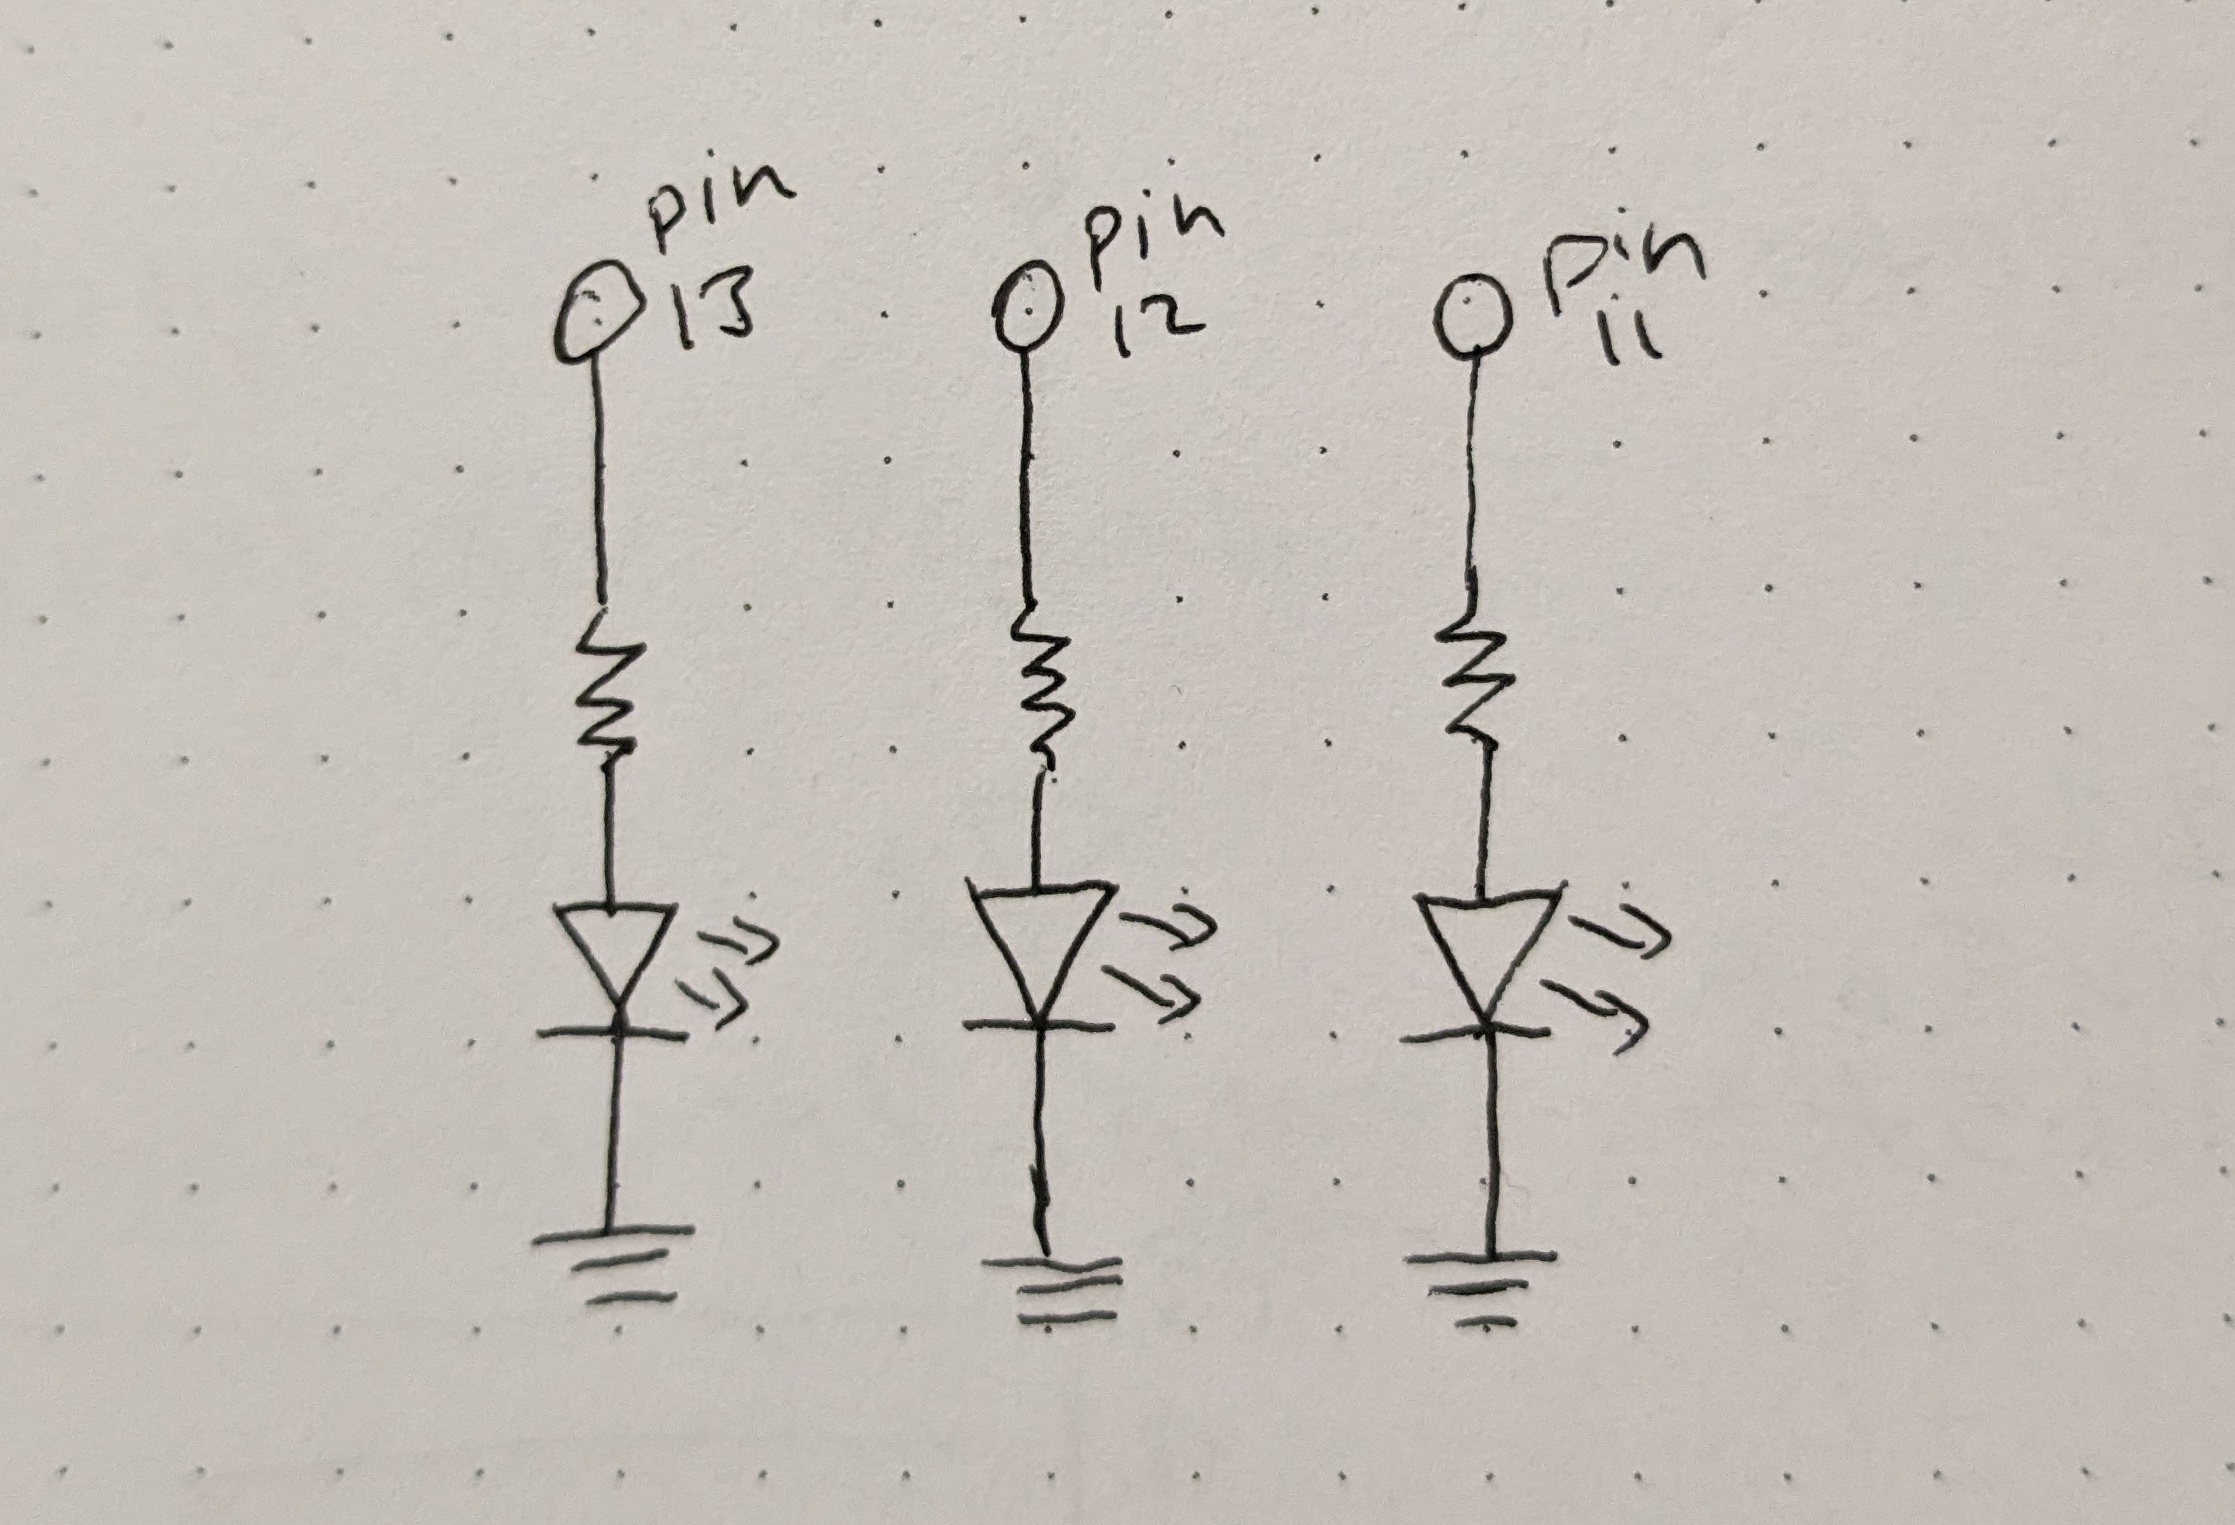 pin
13
pin
12
pin
11